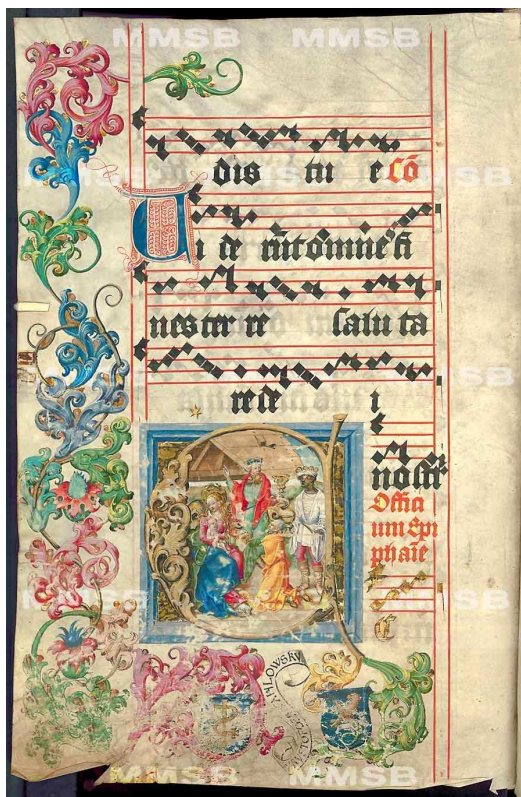 MMSB MMSB
dis tu e Cō
Vi de rūt om̄ne fi
nes ter re salu ta
re de i
nostr
Offici
um Epi
phaīe
E
MMSB MMSB